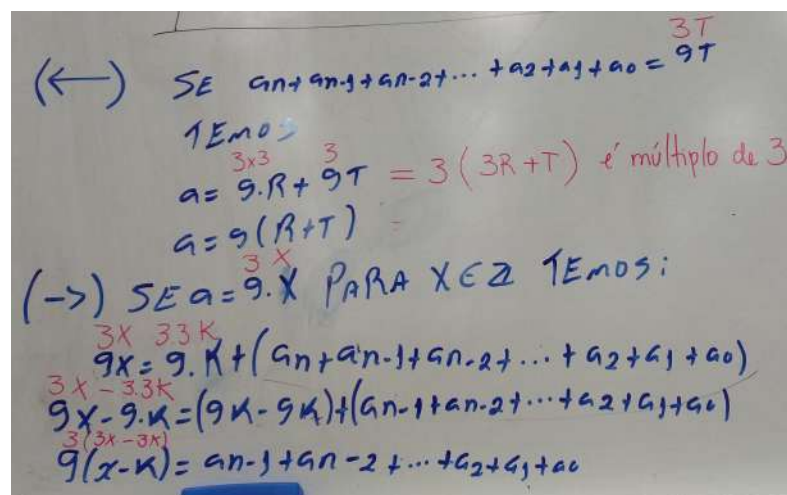 3T
(←) SE an+an-1+an-2+... +a2+a1+a0 = 9T
TEMOS
3x3 3
a = 9.R + 9T = 3(3R+T) é múltiplo de 3
a = 9(R+T) =
3 X
(->) SE a = 9.X PARA X ∈ Z TEMOS:
3X 3.3K
9X = 9.K+(an+an-1+an-2+...+a2+a1+a0)
3X - 3.3K
9X-9.K=(9K-9K)+(an-1+an-2+...+a2+a1+a0)
3(3X-3K)
9(x-K)= an-1+an-2+...+a2+a1+a0